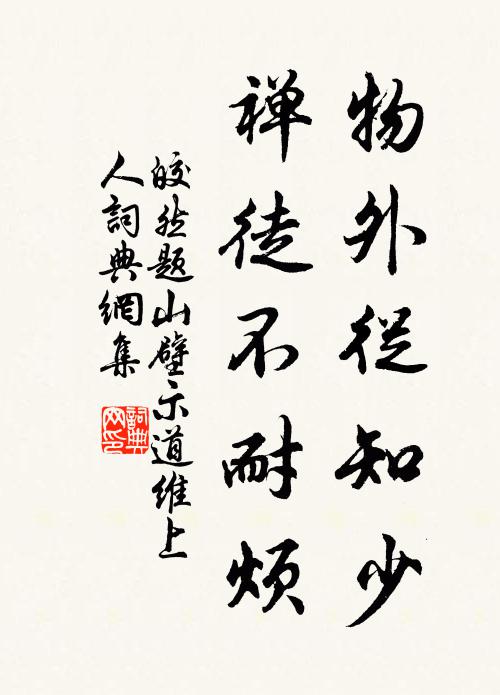 物外從知少
禅徒不耐烦
皎然题山壁示道维上
人詞典網集
詞典
网印